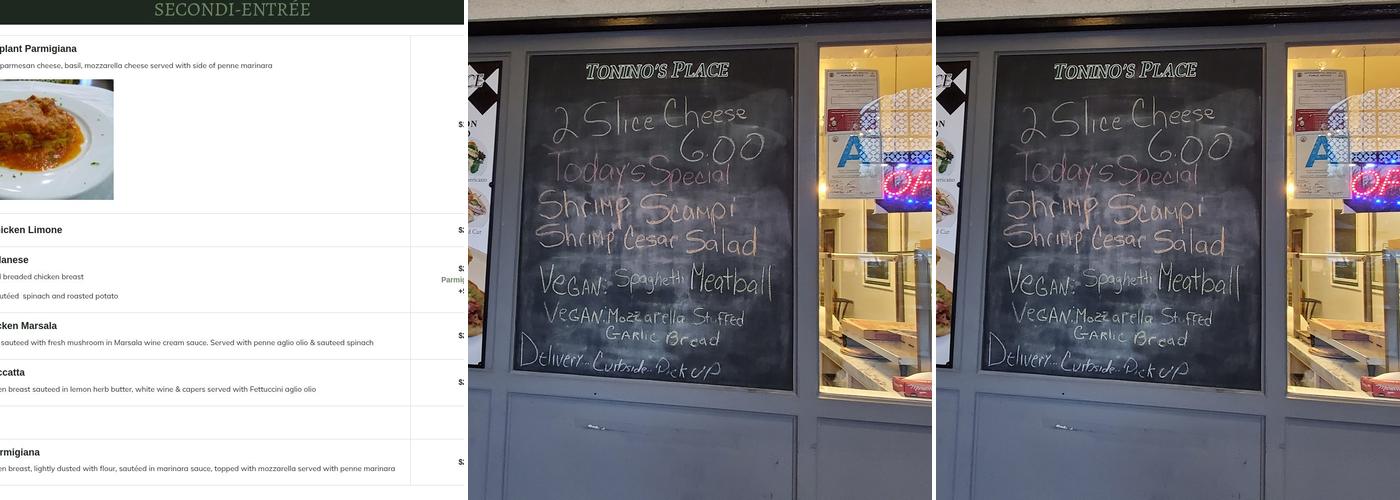 SECONDI-ENTRÉE
plant Parmigiana
parmesan cheese, basil, mozzarella cheese served with side of penne marinara
icken Limone
lanese
breaded chicken breast
utéed spinach and roasted potato
Parmig
cken Marsala
sauteed with fresh mushroom in Marsala wine cream sauce. Served with penne aglio olio & sauteed spinach
ccatta
en breast sauteed in lemon herb butter, white wine & capers served with Fettuccini aglio olio
rmigiana
en breast, lightly dusted with flour, sautéed in marinara sauce, topped with mozzarella served with penne marinara
TONINO'S PLACE
2 Slice Cheese
6.00
Today's Special
Shrimp Scampi
Shrimp Cesar Salad
VEGAN: Spaghetti Meatball
VEGAN: Mozzarella Stuffed
Garlic Bread
Delivery.. Curbside.. Pick up
A
OP
TONINO'S PLACE
2 Slice Cheese
6.00
Today's Special
Shrimp Scampi
Shrimp Cesar Salad
VEGAN: Spaghetti Meatball
VEGAN: Mozzarella Stuffed
Garlic Bread
Delivery.. Curbside.. Pick up
A
OP